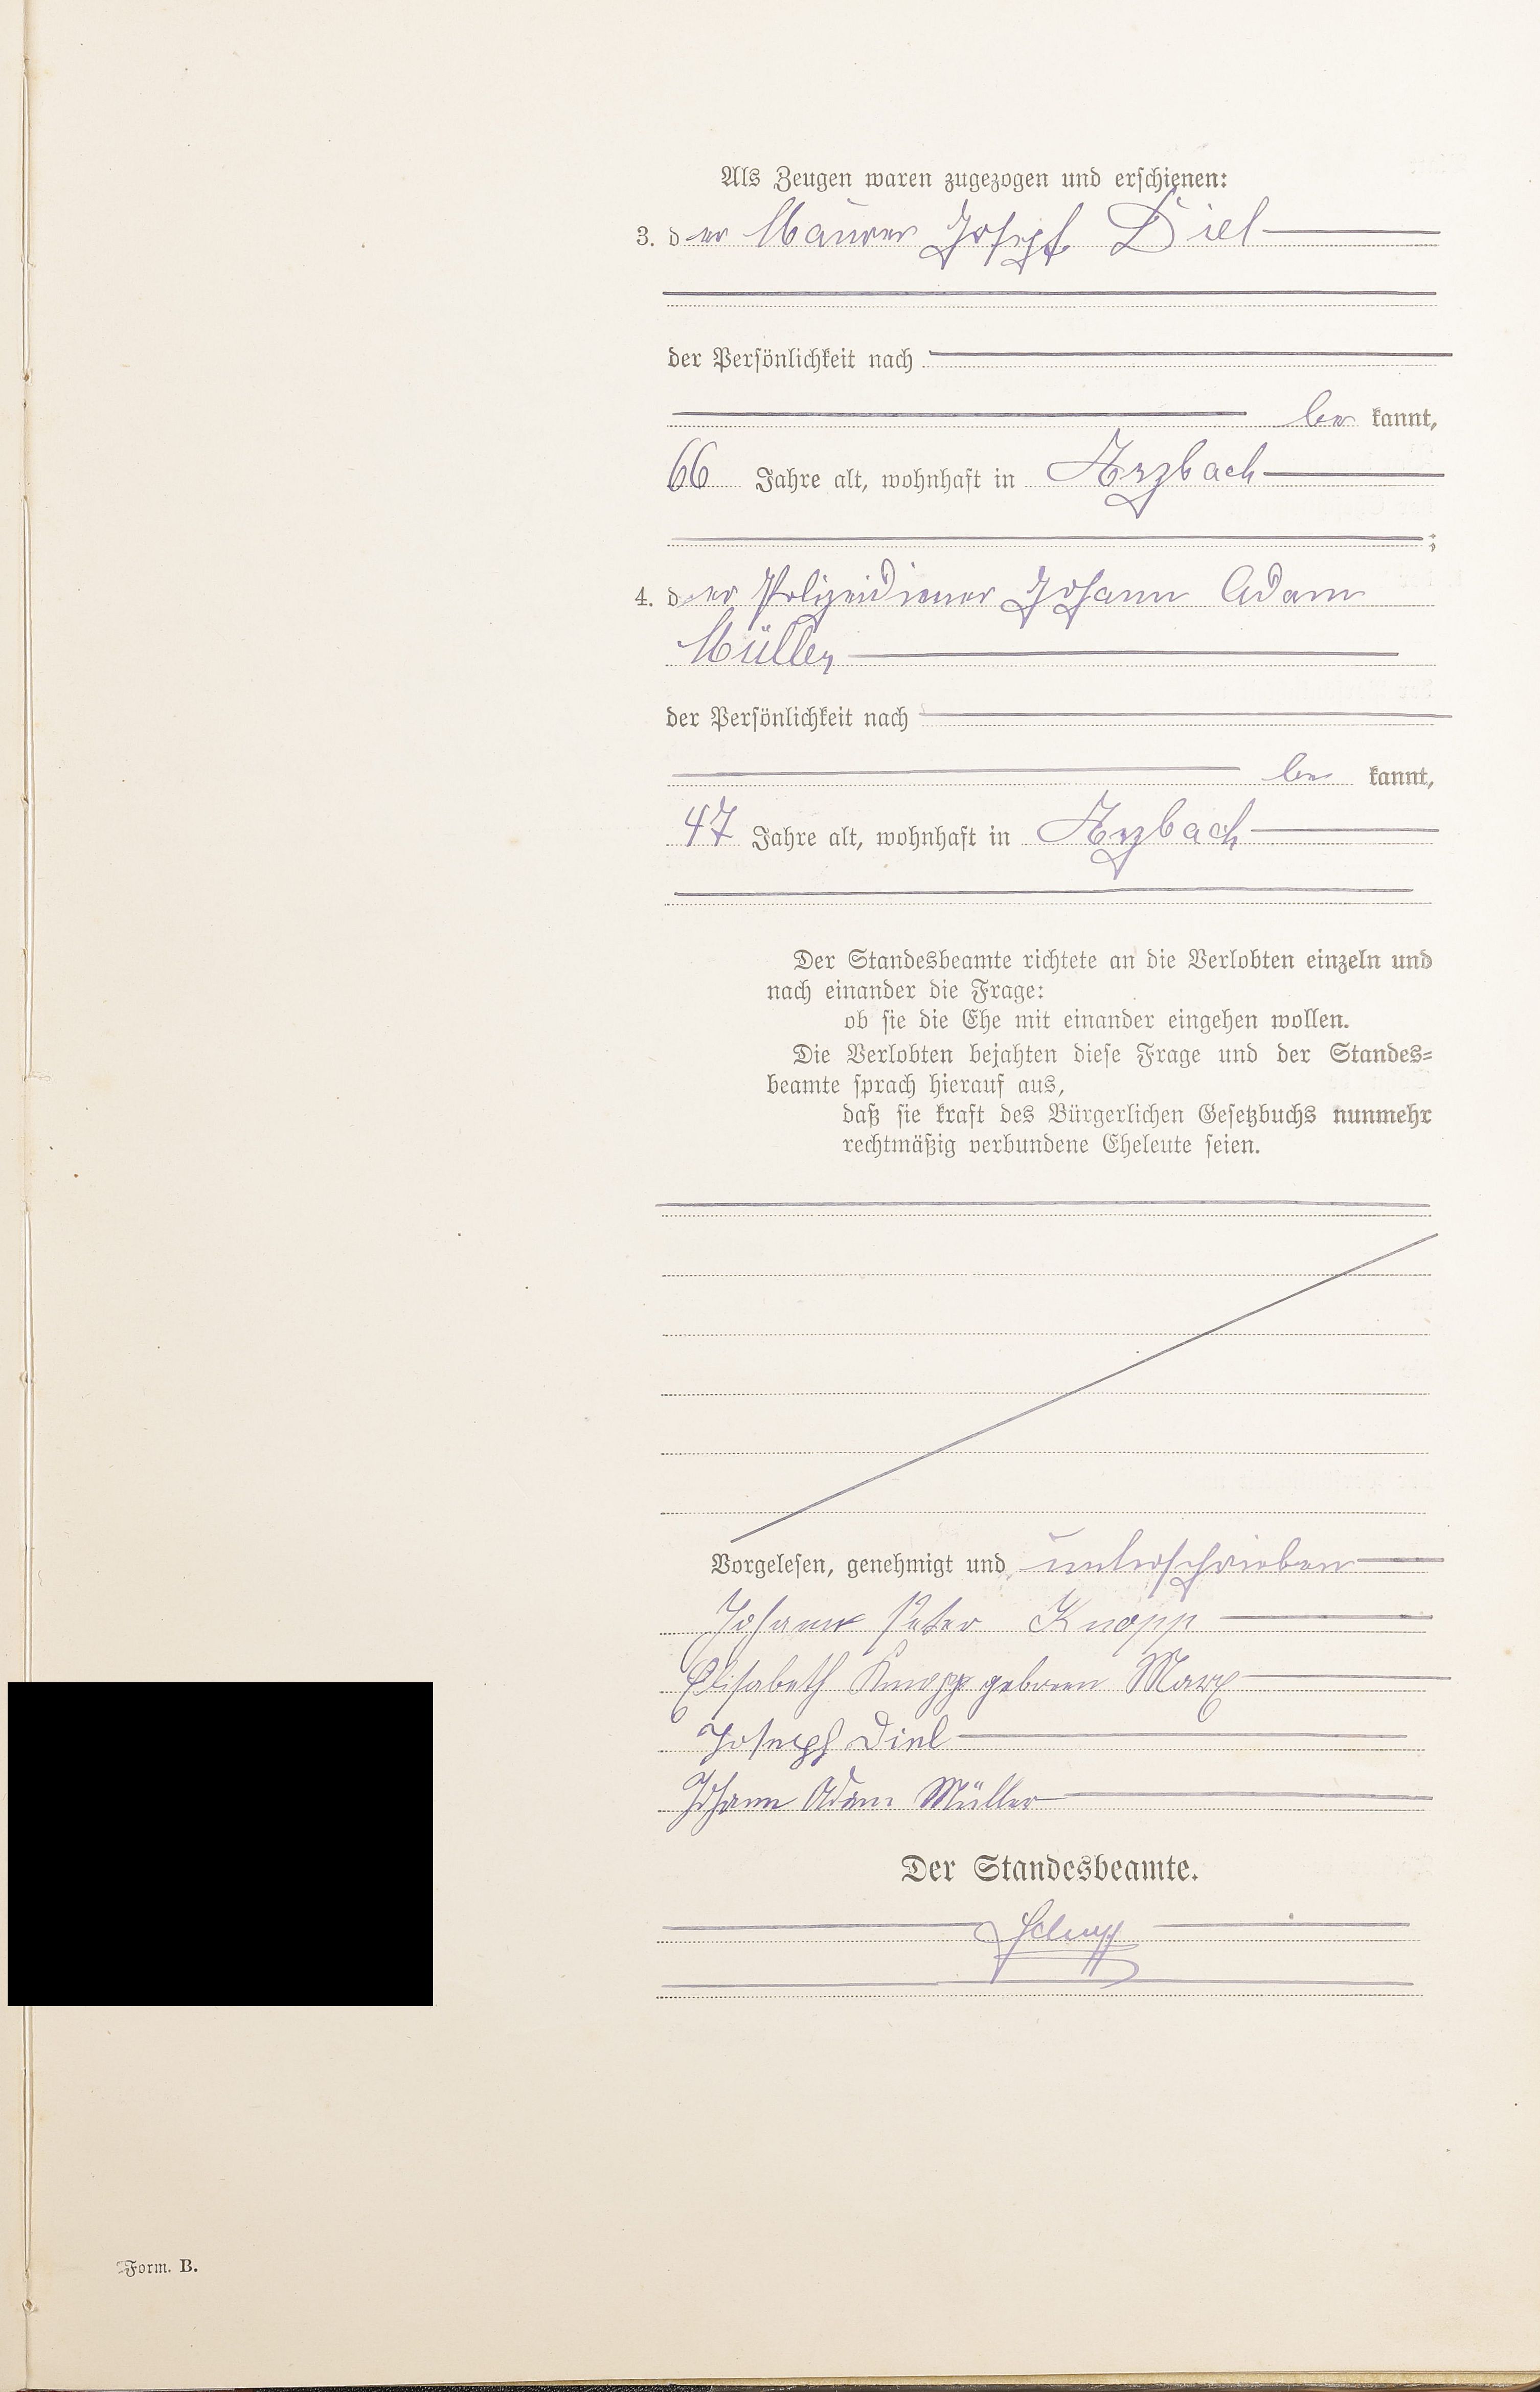 Als Zeugen waren zugezogen und erschienen:
3. der Maurer Joseph Diel
der Persönlichkeit nach
be kannt,
66 Jahre alt, wohnhaft in Arzbach
;
4. der Polizeidiener Johann Adam
Müller
der Persönlichkeit nach
be kannt,
47 Jahre alt, wohnhaft in Arzbach
Der Standesbeamte richtete an die Verlobten einzeln und
nach einander die Frage:
ob sie die Ehe mit einander eingehen wollen.
Die Verlobten bejahten diese Frage und der Standes=
beamte sprach hierauf aus,
daß sie kraft des Bürgerlichen Gesetzbuchs nunmehr
rechtmäßig verbundene Eheleute seien.
Vorgelesen, genehmigt und unterschrieben
Johann Peter Knopp
Elisabeth Knopp geboren Marx
Joseph Diel
Johann Adam Müller
Der Standesbeamte.
Form. B.